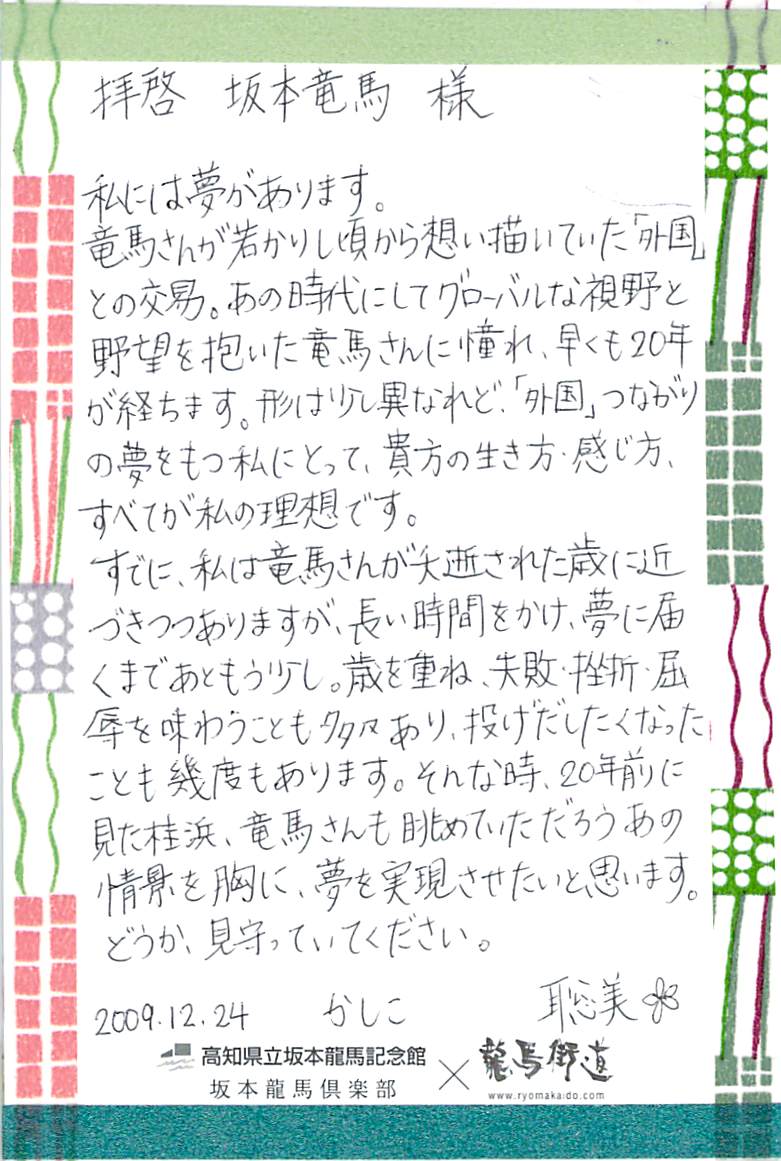 拝啓 坂本竜馬 様
私には夢があります。
竜馬さんが若かりし頃から想い描いていた「外国」
との交易。あの時代にしてグローバルな視野と
野望を抱いた竜馬さんに憧れ、早くも20年
が経ちます。形は少し異なれど、「外国」つながり
の夢をもつ私にとって、貴方の生き方・感じ方、
すべてが私の理想です。
すでに、私は竜馬さんが夭逝された歳に近
づきつつありますが、長い時間をかけ、夢に届
くまであともう少し。歳を重ね、失敗・挫折・屈
辱を味わうことも多々あり、投げだしたくなった
ことも幾度もあります。そんな時、20年前に
見た桂浜、竜馬さんも眺めていただろうあの
情景を胸に、夢を実現させたいと思います。
どうか、見守っていてください。
2009.12.24 かしこ 聡美
高知県立坂本龍馬記念館
坂本龍馬倶楽部 × 龍馬街道
www.ryomakaido.com